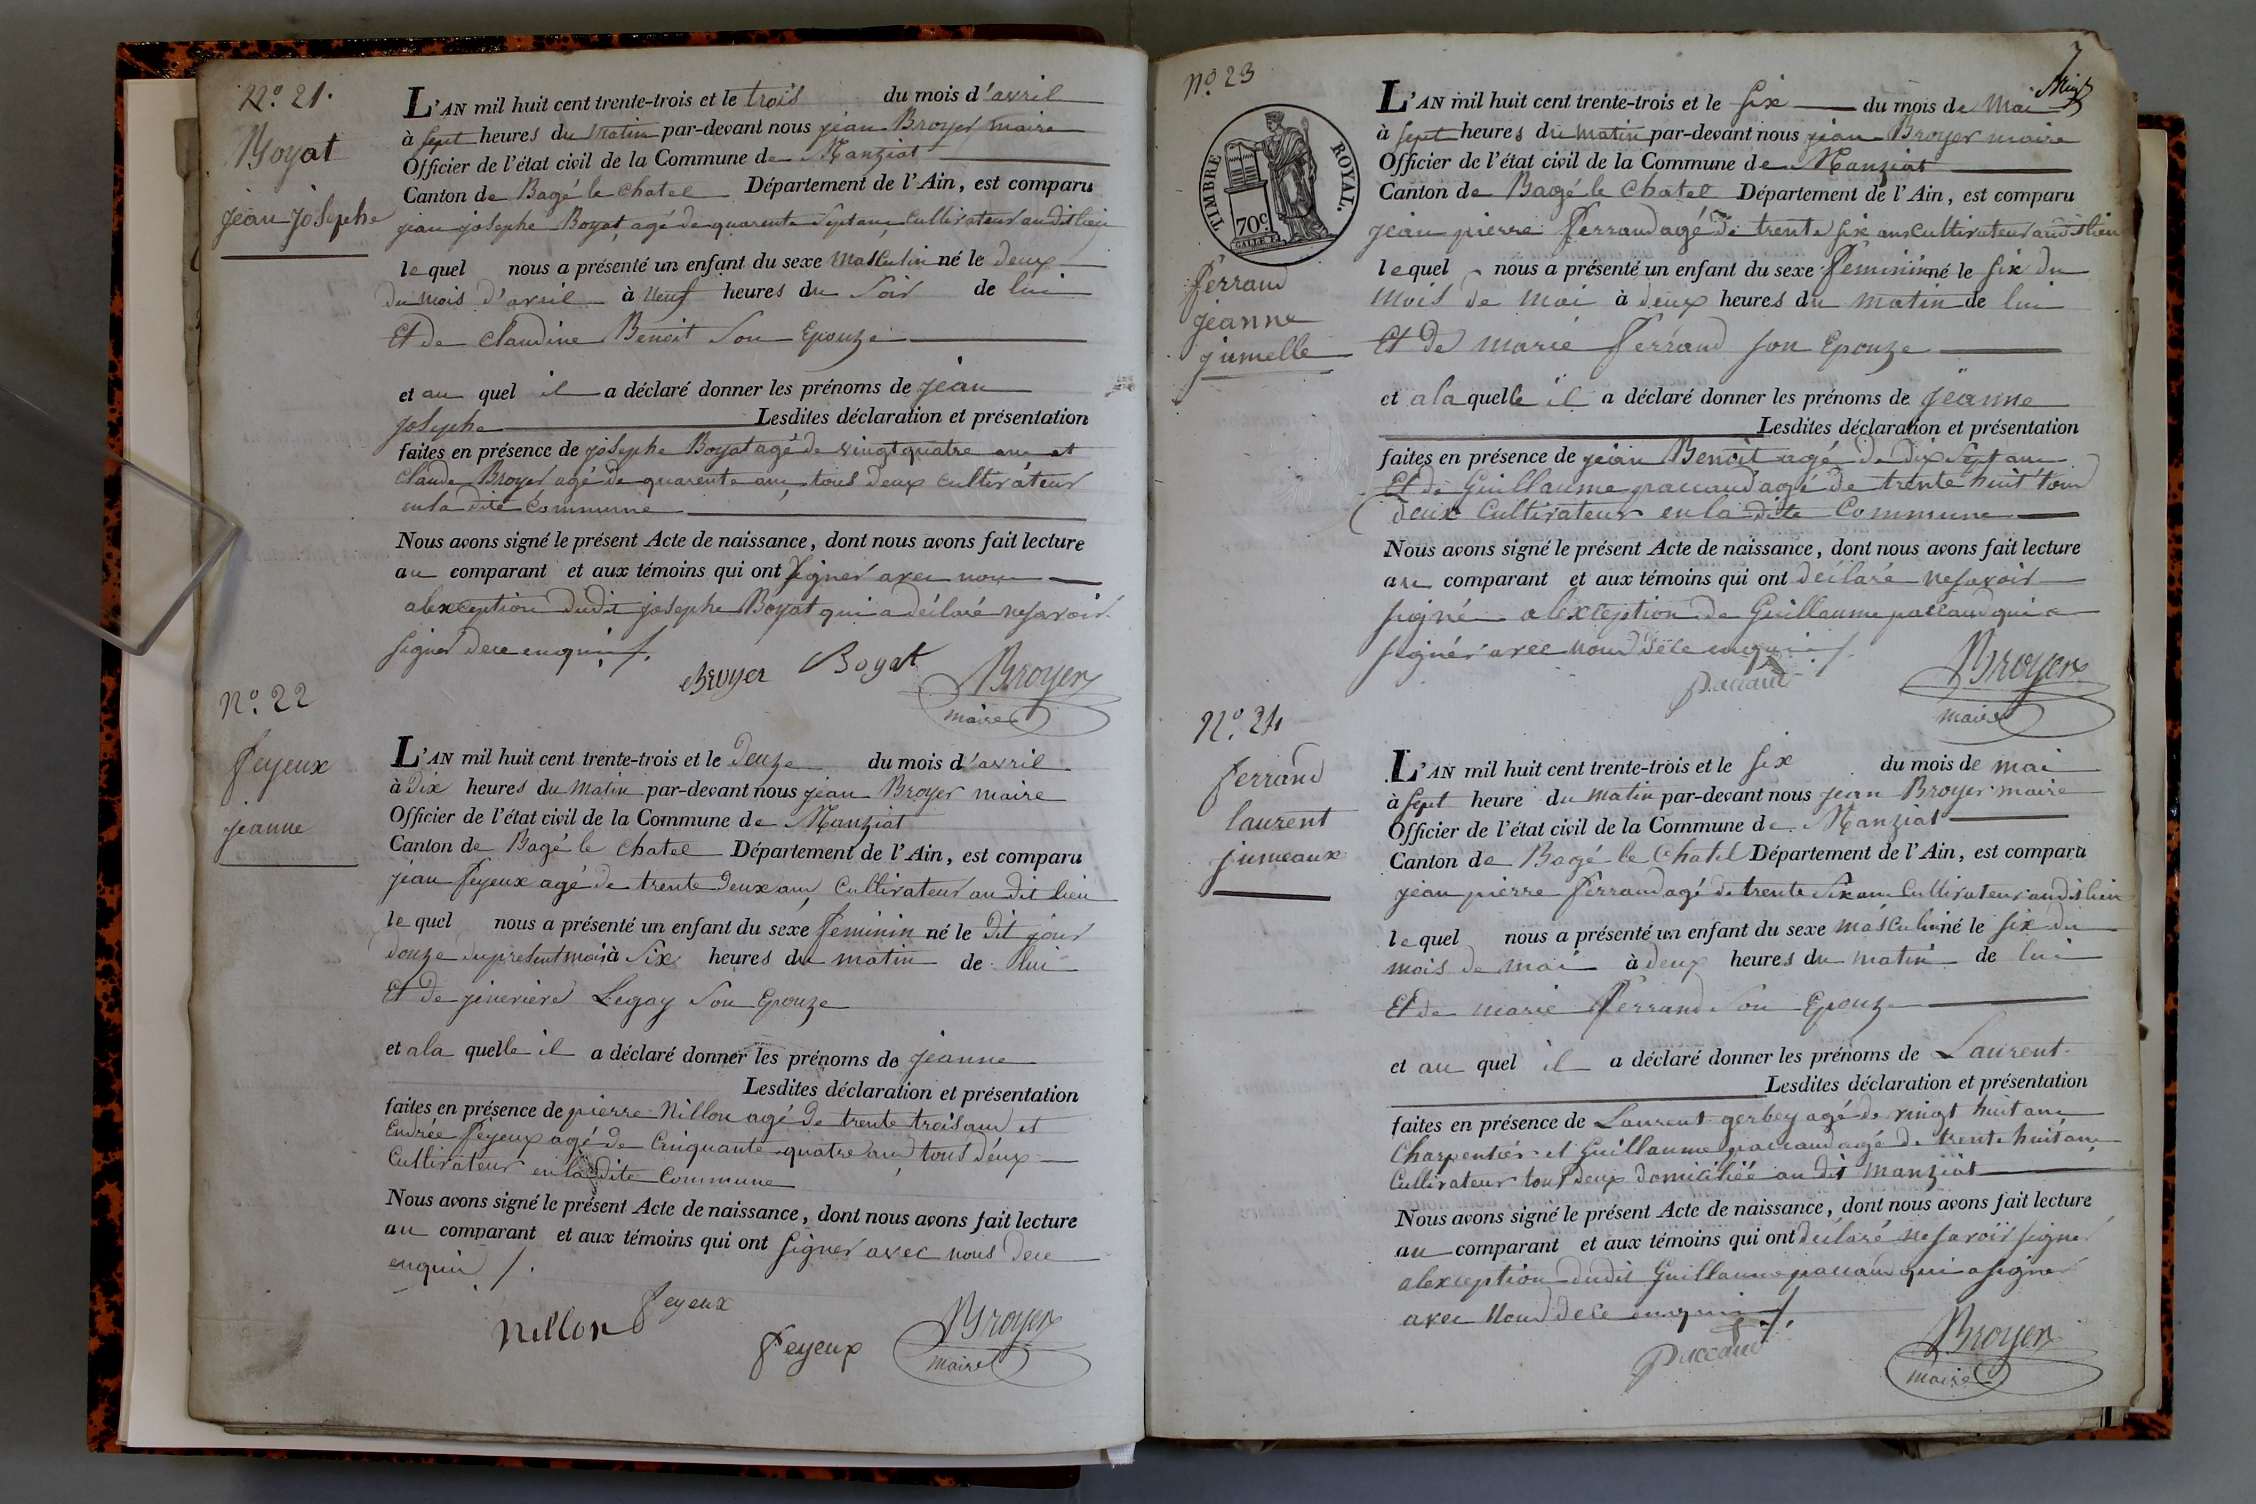 N.º 21.
Boyat
jean josephe
L'AN mil huit cent trente-trois et le trois du mois d'avril
à sept heures du matin par-devant nous jean Broyer maire
Officier de l'état civil de la Commune de Manziat
Canton de Bagé le chatel Département de l'Ain, est comparu
jean josephe Boyat, agé de quarente sept ans, cultivateur audit lieu
le quel nous a présenté un enfant du sexe masculin né le deux
du mois d'avril à neuf heures du soir de lui
Et de claudine Benoit son Epouze
et au quel il a déclaré donner les prénoms de jean
josephe Lesdites déclaration et présentation
faites en présence de josephe Boyat agé de vingt quatre ans et
claude Broyer agé de quarente ans, tous deux cultivateur
en la dite commune
Nous avons signé le présent Acte de naissance, dont nous avons fait lecture
au comparant et aux témoins qui ont signer avec nous
alexception dudit josephe Boyat qui a déclaré ne savoir
signer de ce enquis /.
Broyer Boyat Broyer
maire
N.º 22
feyeux
jeanne
L'AN mil huit cent trente-trois et le douze du mois d'avril
à Dix heures du matin par-devant nous jean Broyer maire
Officier de l'état civil de la Commune de Manziat
Canton de Bagé le chatel Département de l'Ain, est comparu
jean feyeux agé de trente deux ans, cultivateur au dit lieu
le quel nous a présenté un enfant du sexe feminin né le dit jour
douze du present mois à six heures du matin de lui
Et de jineviève Legay son Epouze
et ala quelle il a déclaré donner les prénoms de jeanne
Lesdites déclaration et présentation
faites en présence de pierre Nillon agé de trente trois ans et
Endrée feyeux agé de cinquante quatre ans, tous deux
cultivateur en la dite commune
Nous avons signé le présent Acte de naissance, dont nous avons fait lecture
au comparant et aux témoins qui ont signer avec nous de ce
enquis /.
Nillon feyeux feyeux Broyer
maire
7
N.º 23
TIMBRE ROYAL.
70c
ferrand
jeanne
jumelle
L'AN mil huit cent trente-trois et le six du mois de Mai
à sept heures du matin par-devant nous jean Broyer maire
Officier de l'état civil de la Commune de Manziat
Canton de Bagé le chatel Département de l'Ain, est comparu
jean pierre ferrand agé de trente six ans cultivateur audit lieu
le quel nous a présenté un enfant du sexe feminin né le six du
mois de mai à deux heures du matin de lui
Et de marie ferrand son Epouze
et ala quelle il a déclaré donner les prénoms de jeanne
Lesdites déclaration et présentation
faites en présence de jean Benoit agé de dix sept ans
Et de Guillaume paccaud agé de trente huit tous
deux cultivateur en la dite commune
Nous avons signé le présent Acte de naissance, dont nous avons fait lecture
au comparant et aux témoins qui ont déclaré ne savoir
signé alexception de Guillaume paccaud qui a
signér avec nous de ce enquis /.
paccaud Broyer
maire
N.º 24
ferrand
laurent
jumeaux
L'AN mil huit cent trente-trois et le six du mois de mai
à sept heure du matin par-devant nous jean Broyer maire
Officier de l'état civil de la Commune de Manziat
Canton de Bagé le chatel Département de l'Ain, est comparu
jean pierre ferrand agé de trente six ans cultivateur audit lieu
le quel nous a présenté un enfant du sexe masculin né le six du
mois de mai à deux heures du matin de lui
Et de marie ferrand son Epouze
et au quel il a déclaré donner les prénoms de Laurent
Lesdites déclaration et présentation
faites en présence de Laurent gerbey agé de vingt huit ans
charpentier et Guillaume paccaud agé de trente huit ans
cultivateur tous deux domicilié au dit manziat
Nous avons signé le présent Acte de naissance, dont nous avons fait lecture
au comparant et aux témoins qui ont déclaré ne savoir signer
alexception dudit Guillaume paccaud qui a signer
avec nous de ce enquis /.
Paccaud Broyer
maire